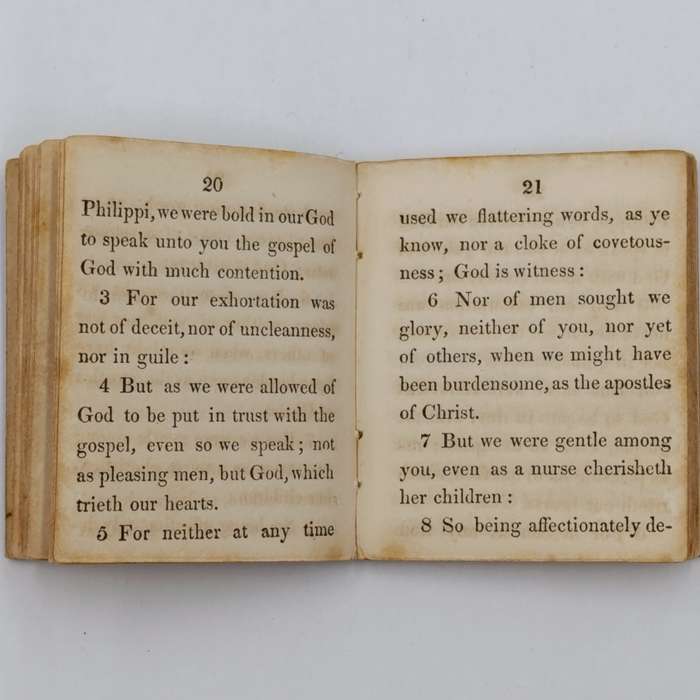 20
Philippi, we were bold in our God
to speak unto you the gospel of
God with much contention.
3 For our exhortation was
not of deceit, nor of uncleanness,
nor in guile :
4 But as we were allowed of
God to be put in trust with the
gospel, even so we speak ; not
as pleasing men, but God, which
trieth our hearts.
5 For neither at any time
21
used we flattering words, as ye
know, nor a cloke of covetous-
ness ; God is witness :
6 Nor of men sought we
glory, neither of you, nor yet
of others, when we might have
been burdensome, as the apostles
of Christ.
7 But we were gentle among
you, even as a nurse cherisheth
her children :
8 So being affectionately de-